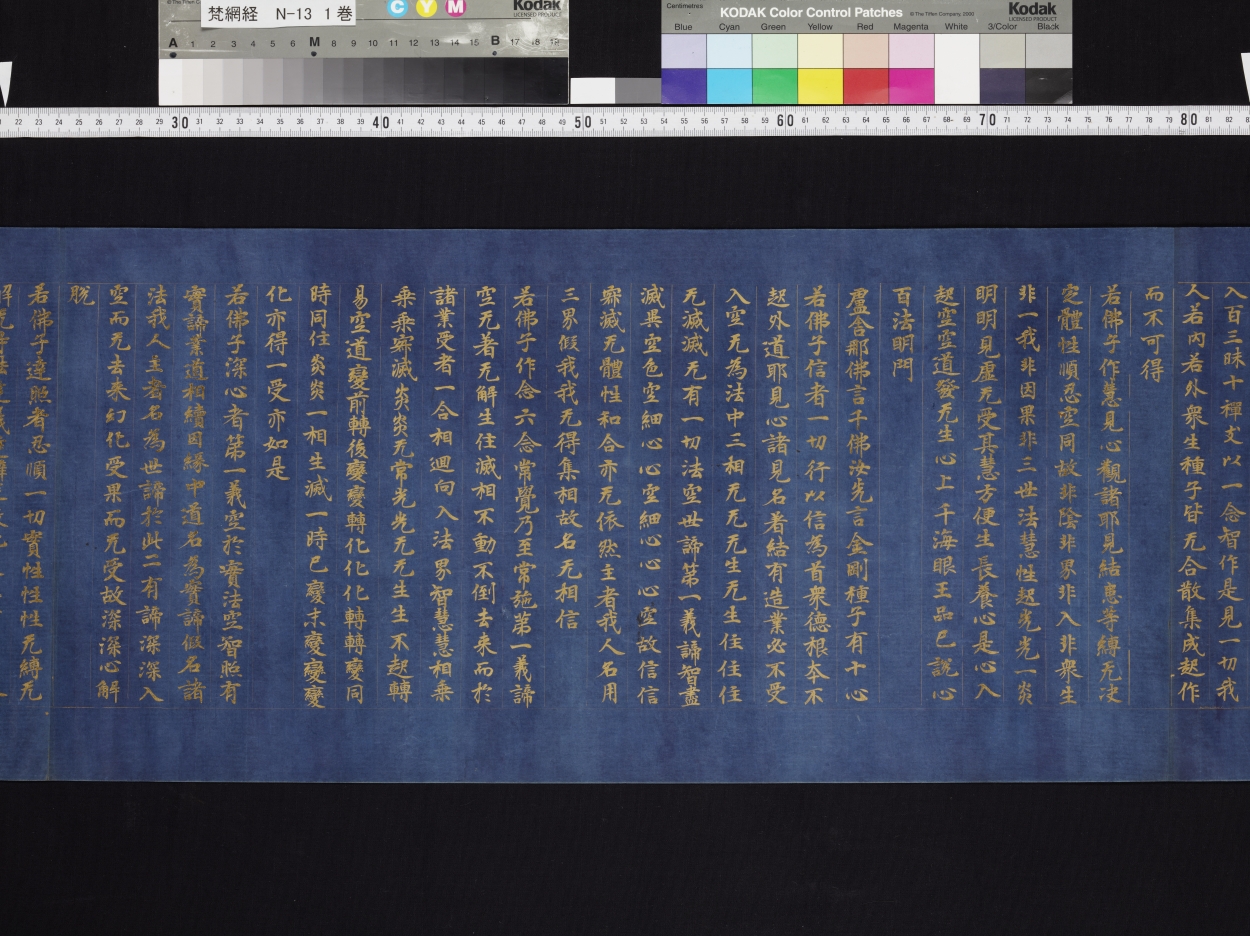 梵網経 N-13 1巻
C Y M
Kodak
LICENSED PRODUCT
A 1 2 3 4 5 6 M 8 9 10 11 12 13 14 15 B 17 18 19
Centimetres
KODAK Color Control Patches
© The Tiffen Company, 2000
Kodak
LICENSED PRODUCT
Blue Cyan Green Yellow Red Magenta White 3/Color Black
22 23 24 25 26 27 28 29 30 31 32 33 34 35 36 37 38 39 40 41 42 43 44 45 46 47 48 49 50 51 52 53 54 55 56 57 58 59 60 61 62 63 64 65 66 67 68 69 70 71 72 73 74 75 76 77 78 79 80 81 82
入百三昧十禪支以一念智作是見一切我
人若內若外衆生種子皆无合散集成起作
而不可得
若佛子作慧見心觀諸耶見結患等縛无决
定體性順忍空同故非陰非界非入非衆生
非一我非因果非三世法慧性起光光一炎
明明見虛无受其慧方便生長養心是心入
起空空道發无生心上千海眼王品已說心
百法明門
盧舍那佛言千佛汝先言金剛種子有十心
若佛子信者一切行以信為首衆德根夲不
起外道耶見心諸見名著結有造業必不受
入空无為法中三相无无无生无生住住住
无滅滅无有一切法空世諦第一義諦智盡
滅異空色空細心心空細心心心空故信信
寂滅无體性和合亦无依然主者我人名用
三界假我我无得集相故名无相信
若佛子作念六念常覺乃至常施第一義諦
空无著无解生住滅相不動不到去来而於
諸業受者一合相迴向入法界智慧慧相乗
乗乗寂滅炎炎无常光光无无生生不起轉
易空道變前轉後變變轉化化化轉轉變同
時同住炎炎一相生滅一時已變未變變變
化亦得一受亦如是
若佛子深心者第一義空於實法空智照有
實諦業道相續因緣中道名為實諦假名諸
法我人主者名為世諦於此二有諦深深入
空而无去来幻化受果而无受故深深心解
脫
若佛子達照者忍順一切實性性性无縛无